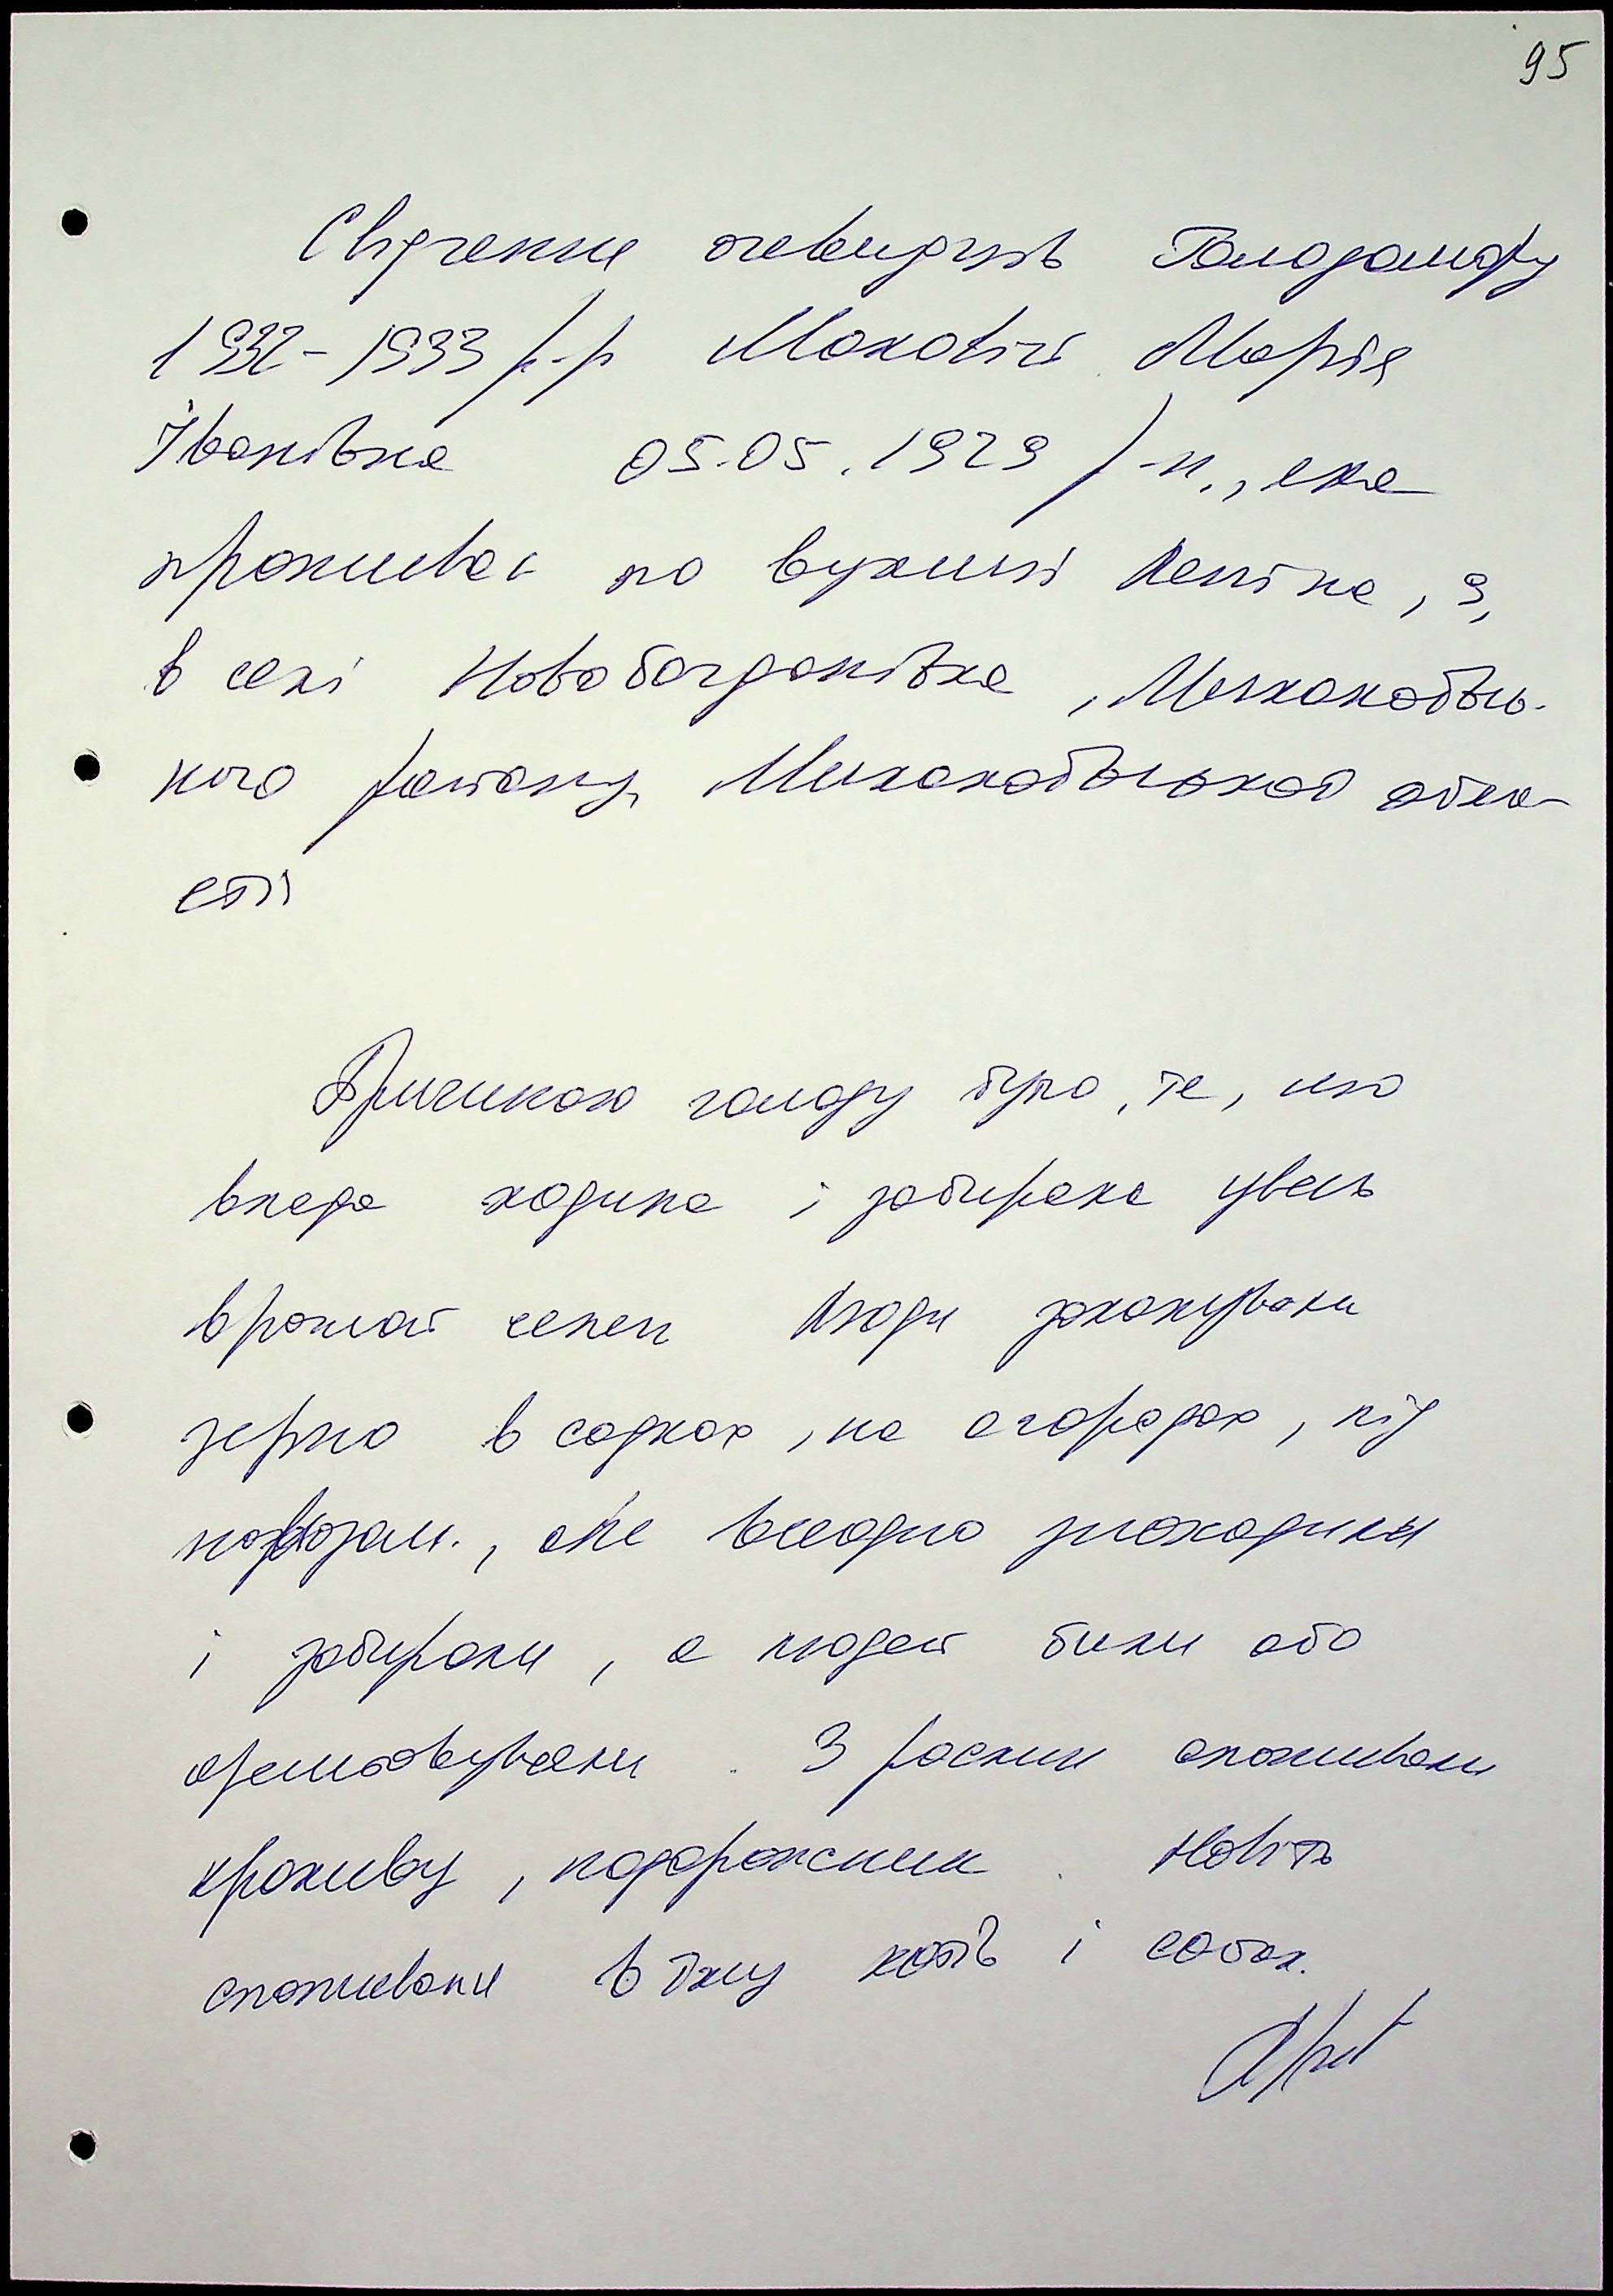 95
Свідчення очевидців Голодомору
1932-1933 р-р Маховій Марія
Іванівна 05.05.1929 р-н., яка
проживає по вулиці Леніна, 9,
в селі Новобогданівка, Мелітопольсь-
кого району, Мелітопольської обла-
сті
Причиною голоду було, те, що
влада ходила і забирала увесь
врожай селян Люди закопували
зерно в садках, на огородах, під
, але всеодно знаходили
і забирали, а людей били або
арештовували. З рослин споживали
кропиву, подорожник. Навіть
споживали в їжу котів і собак.